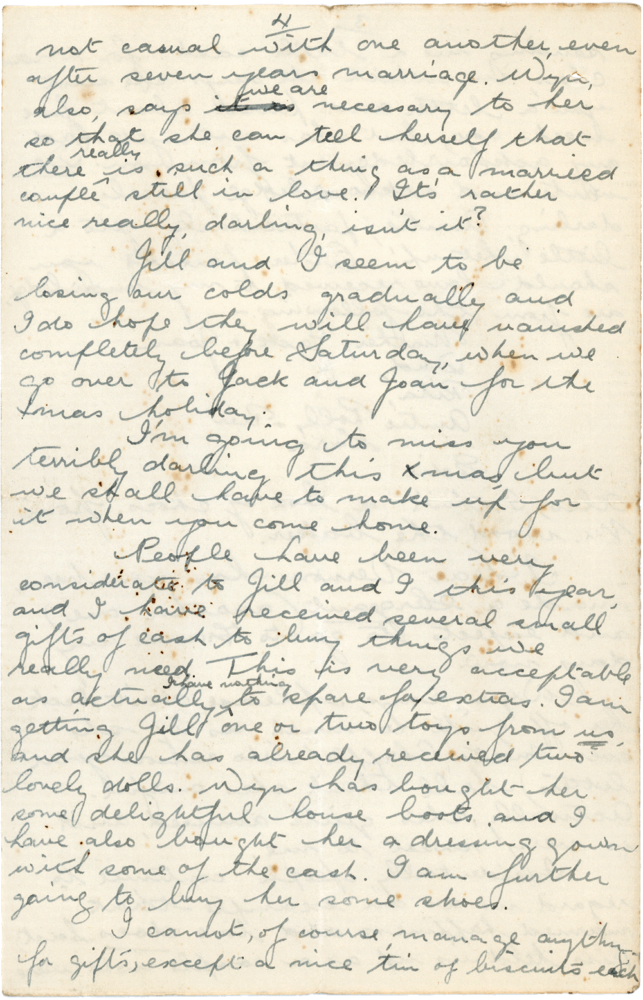 4
not casual with one another, even
after seven years marriage. Wyn,
also, says it is we are necessary to her
so that she can tell herself that
there really is such a thing as a married
couple still in love. It's rather
nice really, darling, isn't it?
Jill and I seem to be
losing our colds gradually and
I do hope they will have vanished
completely before Saturday, when we
go over to Jack and Joan for the
Xmas holiday.
I'm going to miss you
terribly darling this Xmas but
we shall have to make up for
it when you come home.
People have been very
considerate to Jill and I this year,
and I have received several small
gifts of cash to buy things we
really need. This is very acceptable
as actually I have nothing to spare for extras. I am
getting Jill one or two toys from us,
and she has already received two
lovely dolls. Wyn has bought her
some delightful house boots and I
have also bought her a dressing gown
with some of the cash. I am further
going to buy her some shoes.
I cannot, of course, manage anything
for gifts, except a nice tin of biscuits each